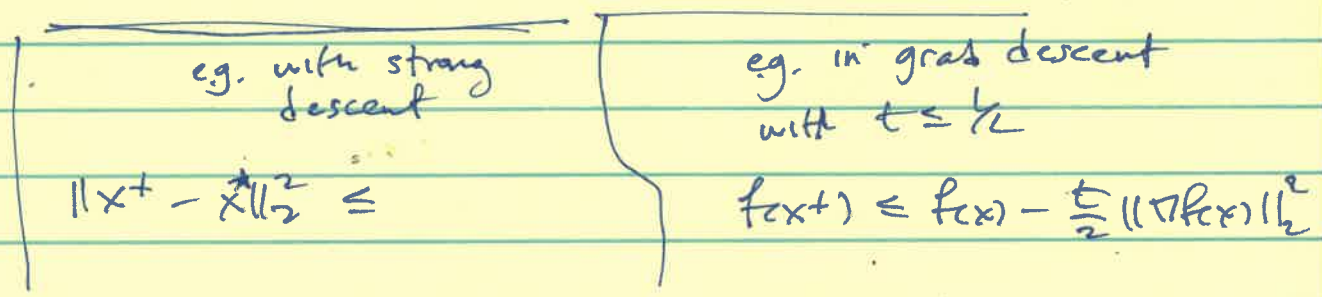 e.g. with strong
descent
‖x⁺ - x*‖₂² ≤
e.g. in grad descent
with t ≤ 1/L
f(x⁺) ≤ f(x) - t/2 ‖∇f(x)‖₂²